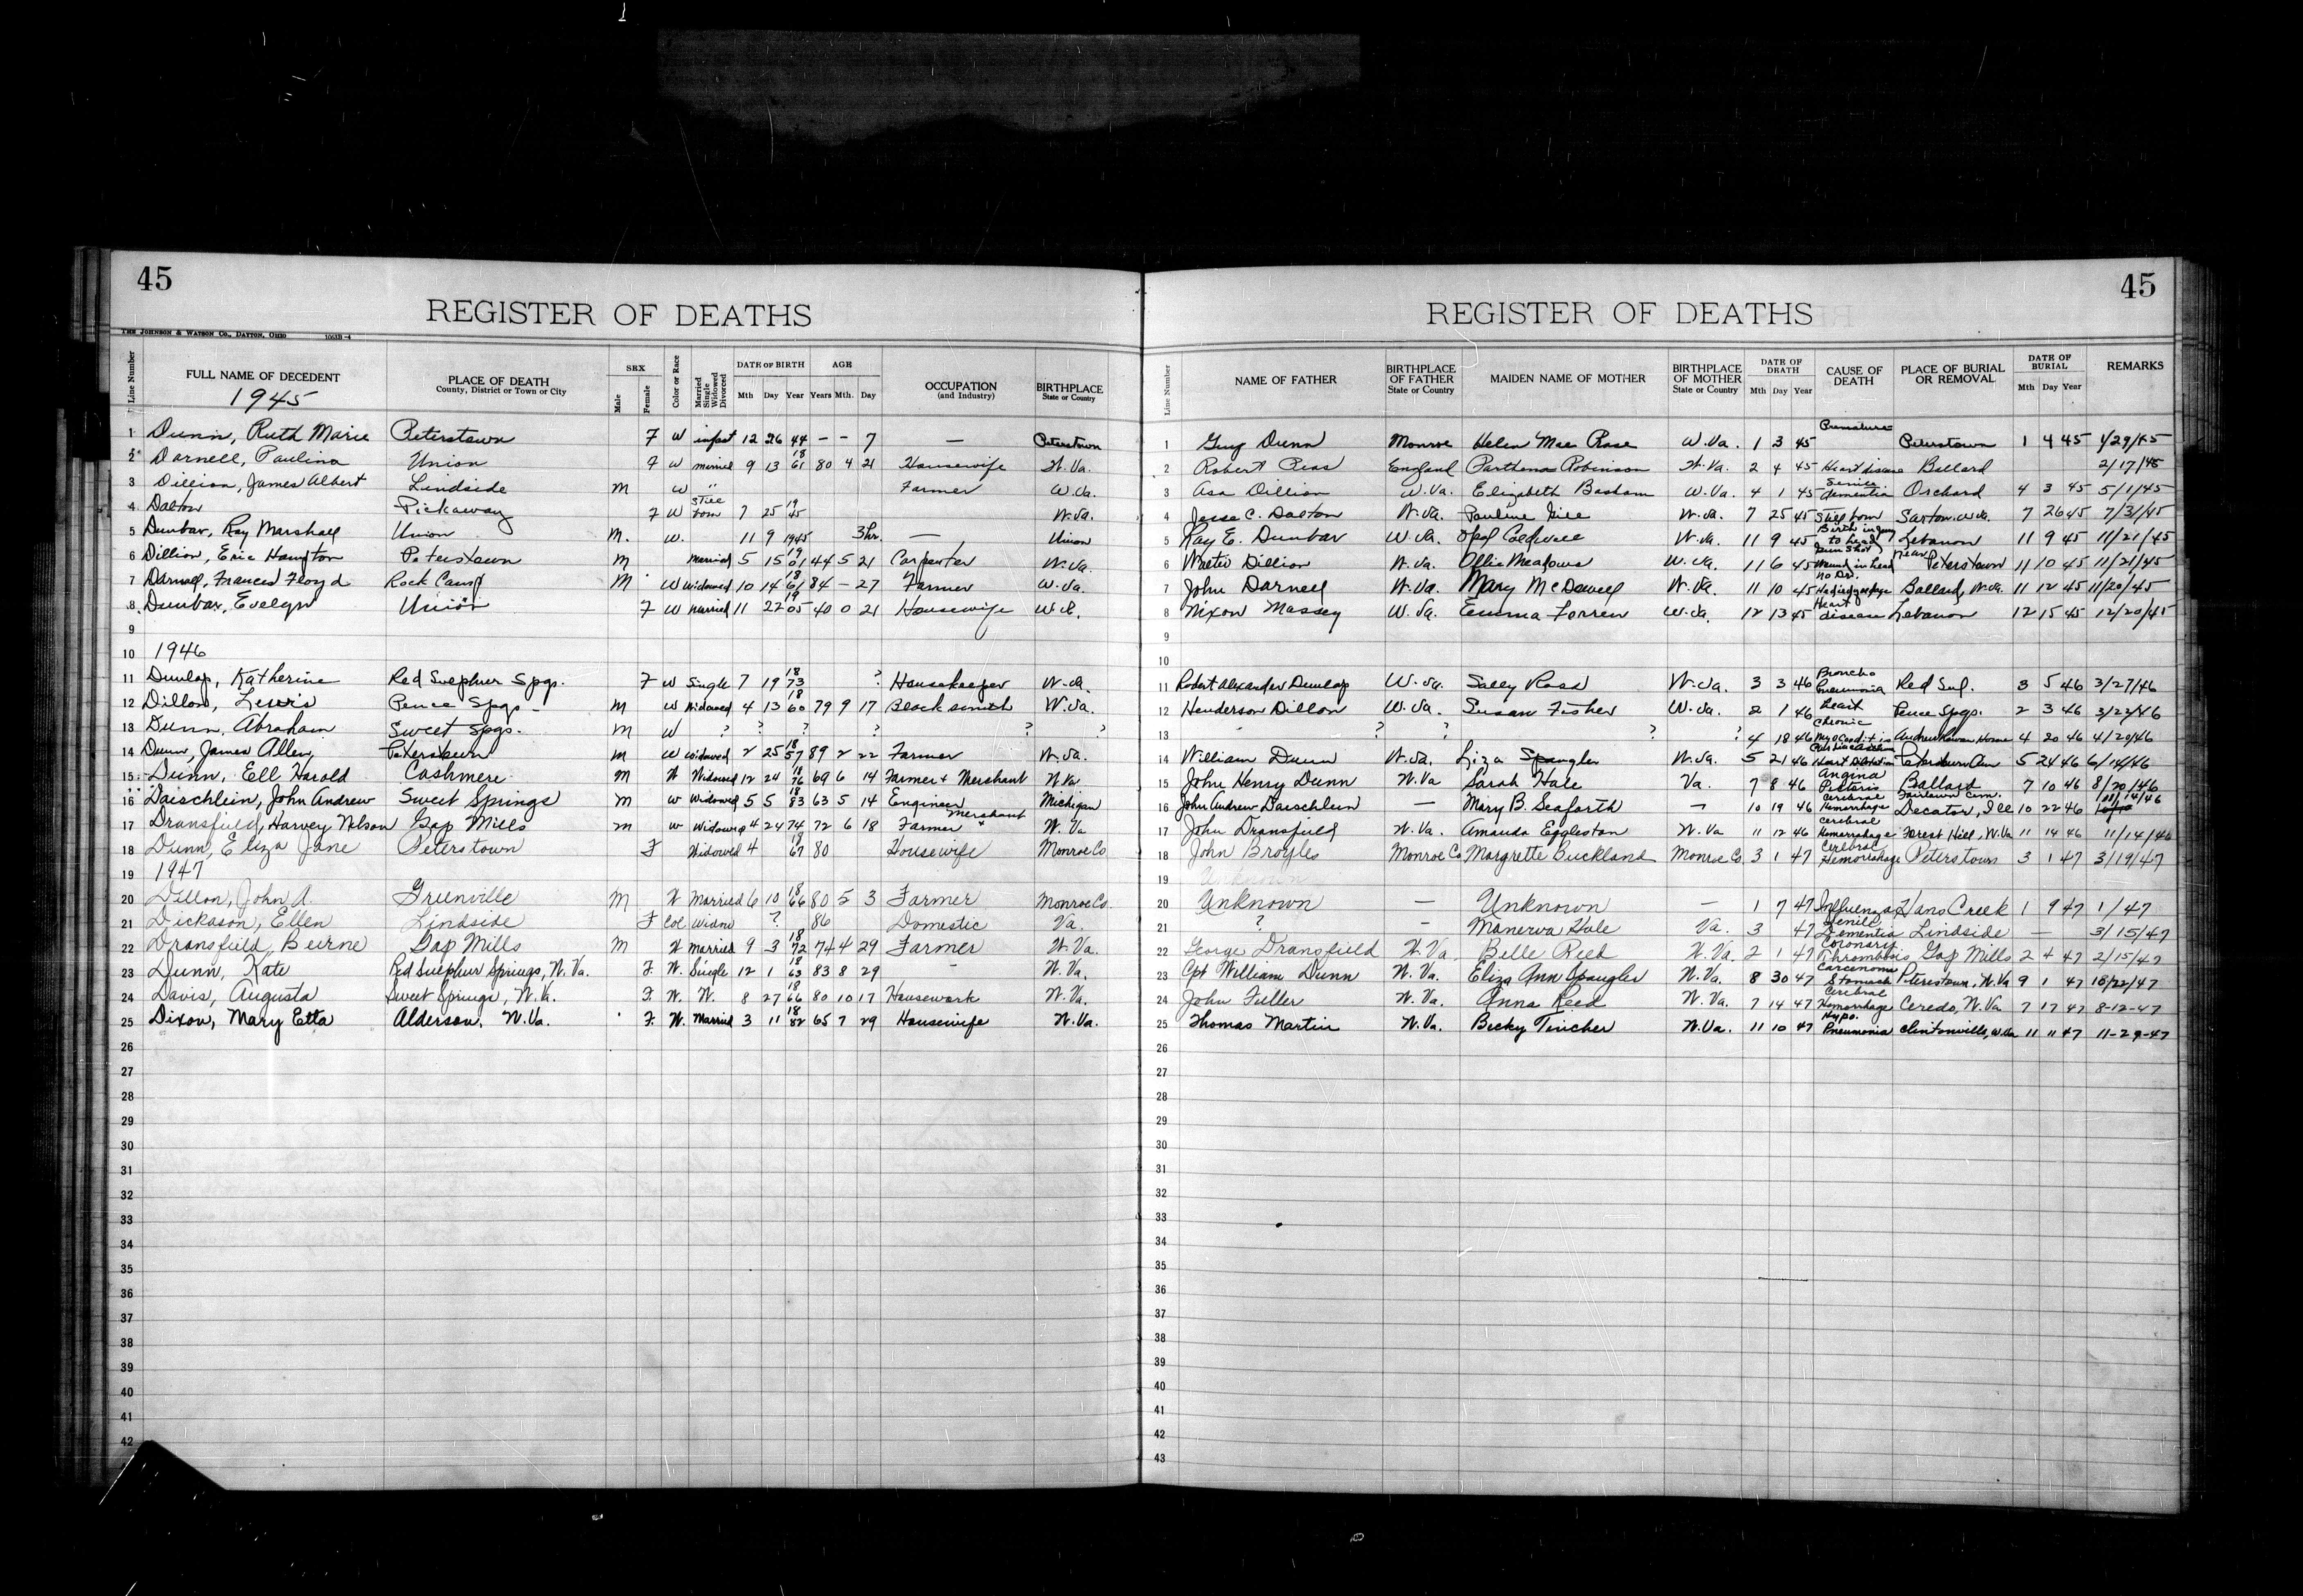 45
REGISTER OF DEATHS
THE JOHNSON & WATSON CO., DAYTON, OHIO
Line Number FULL NAME OF DECEDENT PLACE OF DEATH County, District or Town or City SEX Male Female Color or Race Married Single Widowed Divorced DATE OF BIRTH Mth Day Year AGE Years Mth. Day OCCUPATION (and Industry) BIRTHPLACE State or Country
1945
1 Dunn, Ruth Marie Peterstown F W infant 12 26 44 – – 7 — Peterstown
2 Darnell, Paulina Union F W married 9 13 1861 80 4 21 Housewife W.Va.
3 Dillion, James Albert Lindside M W " Farmer W.Va.
4 Dalton Pickaway F W Still born 7 25 1945 W.Va.
5 Dunbar, Ray Marshall Union M. W. 11 9 1945 3hr. — Union
6 Dillion, Eric Hampton Peterstown M Married 5 15 1901 44 5 21 Carpenter W.Va.
7 Darnell, Frances Floyd Rock Camp M W Widowed 10 14 1861 84 – 27 Farmer W.Va.
8 Dunbar, Evelyn Union F W Married 11 22 1905 40 0 21 Housewife W.Va.
9
10 1946
11 Dunlap, Katherine Red Sulphur Spgs. F W Single 7 19 1873 ? Housekeeper W.Va.
12 Dillon, Lewis Pence Spgs – M W Widowed 4 13 1860 79 9 17 Blacksmith W.Va.
13 Dunn, Abraham Sweet Spgs. M W ? ? ? ? ? ?
14 Dunn, James Allen, Peterstown M W Widowed 2 25 1857 89 2 22 Farmer W.Va.
15 Dunn, Ell Harold Cashmere M W Widowed 12 24 1876 69 6 14 Farmer + Merchant W.Va.
16 Daischlein, John Andrew Sweet Springs M W Widowed 5 5 1883 63 5 14 Engineer Michigan
17 Dransfield, Harvey Nelson Gap Mills M W Widowed 4 24 74 72 6 18 Farmer + Merchant W.Va
18 Dunn, Eliza Jane Peterstown F Widowed 4 1867 80 Housewife Monroe Co
19 1947
20 Dillon, John A. Greenville M W Married 6 10 1866 80 5 3 Farmer Monroe Co.
21 Dickason, Ellen Lindside F Col Widow ? 86 Domestic Va.
22 Dransfield, Beirne Gap Mills M W Married 9 3 1872 74 4 29 Farmer W.Va.
23 Dunn, Kate Red Sulphur Springs, W.Va. F. W. Single 12 1 1863 83 8 29 – W.Va.
24 Davis, Augusta Sweet Springs, W.Va. F. W. W. 8 27 1866 80 10 17 Housework W.Va.
25 Dixon, Mary Etta Alderson, W.Va. F. W. Married 3 11 1882 65 7 29 Housewife W.Va.
26
27
28
29
30
31
32
33
34
35
36
37
38
39
40
41
42
45
REGISTER OF DEATHS
Line Number NAME OF FATHER BIRTHPLACE OF FATHER State or Country MAIDEN NAME OF MOTHER BIRTHPLACE OF MOTHER State or Country DATE OF DEATH Mth Day Year CAUSE OF DEATH PLACE OF BURIAL OR REMOVAL DATE OF BURIAL Mth Day Year REMARKS
1 Guy Dunn Monroe Helen Mae Rose W.Va. 1 3 45 Premature Peterstown 1 4 45 1/29/45
2 Robert England Parthena Robinson W.Va. 2 4 45 Heart disease Ballard 2/17/45
3 Asa Dillion W.Va. Elizabeth Basham W.Va. 4 1 45 Senile dementia Orchard 4 3 45 5/1/45
4 Jesse C. Dalton W.Va. Pauline W.Va. 7 25 45 Still born W.Va. 7 26 45 7/31/45
5 Ray E. Dunbar W.Va. Opal Caldwell W.Va. 11 9 45 Birth injury to head Lebanon 11 9 45 11/21/45
6 Walter Dillion W.Va. Ollie Meadows W.Va. 11 6 45 Gun Shot Wound in head near Peterstown 11 10 45 11/21/45
7 John Darnell W.Va. Mary McDowell W.Va. 11 10 45 No Dr. Ballard, W.Va. 11 12 45 11/20/45
8 Nixon Massey W.Va. Emma Forren W.Va. 12 13 45 Heart disease Lebanon 12 15 45 12/20/45
9
10
11 Robert Alexander Dunlap W.Va. Sally Ross W.Va. 3 3 46 Broncho Pneumonia Red Sul. 3 5 46 3/27/46
12 Henderson Dillon W.Va. Susan Fisher W.Va. 2 1 46 Heart Pence Spgs. 2 3 46 3/22/46
13 ? ? ? ? 4 18 46 Chronic Myocarditis Andrew Rowan Home 4 20 46 4/20/46
14 William Dunn W.Va. Liza Spangler W.Va. 5 21 46 Heart Dilatation 5 24 46 6/14/46
15 John Henry Dunn W.Va Sarah Hale Va. 7 8 46 Angina Pectoris Ballard 7 10 46 8/20/46
16 John Andrew Daischlein — Mary B. Seaforth – 10 19 46 Cerebral Hemorrhage Fairlawn Cem. Decator, Ill 10 22 46
17 John Dransfield W.Va. Amanda Eggleston W.Va 11 12 46 Cerebral Hemorrhage Forest Hill, W.Va 11 14 46 11/14/46
18 John Broyles Monroe Co Margrette Buckland Monroe Co. 3 1 47 Cerebral Hemorrhage Peterstown 3 1 47 3/19/47
19
20 Unknown — Unknown – 1 7 47 Influenza Hans Creek 1 9 47 1/47
21 ? – Manerva Hale Va. 3 47 Senile Dementia Lindside — 3/15/47
22 George Drangfield W.Va. Belle Reed W.Va. 2 1 47 Coronary Thrombosis Gap Mills 2 4 47 2/15/47
23 Cpt William Dunn W.Va. Eliza Ann Spangler W.Va. 8 30 47 Carcenoma Stomach Peterstown, W.Va 9 1 47 10/22/47
24 John Fuller W.Va. Anna Reed W.Va. 7 14 47 Cerebral Hemorrhage Ceredo, W.Va 7 17 47 8-12-47
25 Thomas Martin W.Va. Becky Tincher W.Va. 11 10 47 Hypo. Pneumonia Clintonville, W.Va 11 11 47 11-29-47
26
27
28
29
30
31
32
33
34
35
36
37
38
39
40
41
42
43